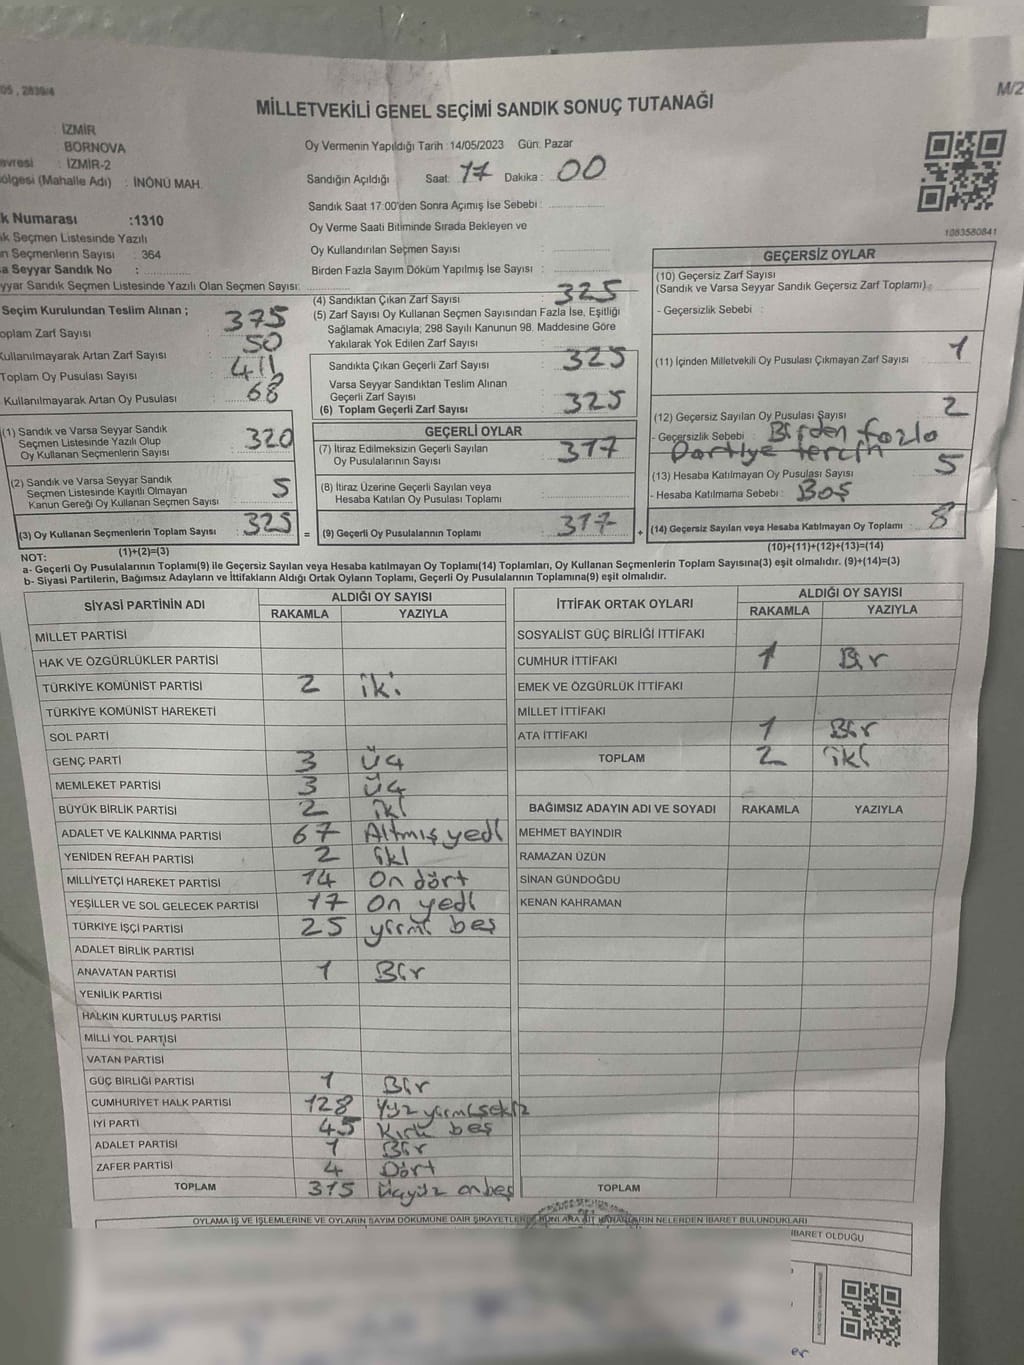 05 , 2839/4
M/2
MİLLETVEKİLİ GENEL SEÇİMİ SANDIK SONUÇ TUTANAĞI
İZMİR
BORNOVA
evresi : İZMİR-2
ölgesi (Mahalle Adı) : İNÖNÜ MAH.
k Numarası :1310
ık Seçmen Listesinde Yazılı
n Seçmenlerin Sayısı : 364
a Seyyar Sandık No :
yyar Sandık Seçmen Listesinde Yazılı Olan Seçmen Sayısı:
Seçim Kurulundan Teslim Alınan ;
oplam Zarf Sayısı : 375
Kullanılmayarak Artan Zarf Sayısı : 50
Toplam Oy Pusulası Sayısı : 411
Kullanılmayarak Artan Oy Pusulası : 68
(1) Sandık ve Varsa Seyyar Sandık
Seçmen Listesinde Yazılı Olup
Oy Kullanan Seçmenlerin Sayısı : 320
(2) Sandık ve Varsa Seyyar Sandık
Seçmen Listesinde Kayıtlı Olmayan
Kanun Gereği Oy Kullanan Seçmen Sayısı : 5
(3) Oy Kullanan Seçmenlerin Toplam Sayısı : 325
(1)+(2)=(3)
Oy Vermenin Yapıldığı Tarih :14/05/2023 Gün: Pazar
Sandığın Açıldığı Saat: 17 Dakika : 00
Sandık Saat 17:00'den Sonra Açımış İse Sebebi :
Oy Verme Saati Bitiminde Sırada Bekleyen ve
Oy Kullandırılan Seçmen Sayısı :
Birden Fazla Sayım Döküm Yapılmış İse Sayısı :
(4) Sandıktan Çıkan Zarf Sayısı : 325
(5) Zarf Sayısı Oy Kullanan Seçmen Sayısından Fazla İse, Eşitliği
Sağlamak Amacıyla; 298 Sayılı Kanunun 98. Maddesine Göre
Yakılarak Yok Edilen Zarf Sayısı :
Sandıkta Çıkan Geçerli Zarf Sayısı : 325
Varsa Seyyar Sandıktan Teslim Alınan
Geçerli Zarf Sayısı :
(6) Toplam Geçerli Zarf Sayısı : 325
GEÇERLİ OYLAR
(7) İtiraz Edilmeksizin Geçerli Sayılan
Oy Pusulalarının Sayısı : 317
(8) İtiraz Üzerine Geçerli Sayılan veya
Hesaba Katılan Oy Pusulası Toplamı :
= (9) Geçerli Oy Pusulalarının Toplamı : 317 +
1083580841
GEÇERSİZ OYLAR
(10) Geçersiz Zarf Sayısı
(Sandık ve Varsa Seyyar Sandık Geçersiz Zarf Toplamı):
- Geçersizlik Sebebi :
(11) İçinden Milletvekili Oy Pusulası Çıkmayan Zarf Sayısı : 1
(12) Geçersiz Sayılan Oy Pusulası Sayısı : 2
- Geçersizlik Sebebi : Birden fazla
Partiye tercih
(13) Hesaba Katılmayan Oy Pusulası Sayısı : 5
- Hesaba Katılmama Sebebi : Boş
(14) Geçersiz Sayılan veya Hesaba Katılmayan Oy Toplamı : 8
(10)+(11)+(12)+(13)=(14)
NOT:
a- Geçerli Oy Pusulalarının Toplamı(9) ile Geçersiz Sayılan veya Hesaba katılmayan Oy Toplamı(14) Toplamları, Oy Kullanan Seçmenlerin Toplam Sayısına(3) eşit olmalıdır. (9)+(14)=(3)
b- Siyasi Partilerin, Bağımsız Adayların ve İttifakların Aldığı Ortak Oyların Toplamı, Geçerli Oy Pusulalarının Toplamına(9) eşit olmalıdır.
SİYASİ PARTİNİN ADI ALDIĞI OY SAYISI
RAKAMLA YAZIYLA
MİLLET PARTİSİ
HAK VE ÖZGÜRLÜKLER PARTİSİ
TÜRKİYE KOMÜNİST PARTİSİ 2 iki
TÜRKİYE KOMÜNİST HAREKETİ
SOL PARTİ
GENÇ PARTİ 3 üç
MEMLEKET PARTİSİ 3 üç
BÜYÜK BİRLİK PARTİSİ 2 iki
ADALET VE KALKINMA PARTİSİ 67 Altmış yedi
YENİDEN REFAH PARTİSİ 2 iki
MİLLİYETÇİ HAREKET PARTİSİ 14 On dört
YEŞİLLER VE SOL GELECEK PARTİSİ 17 On yedi
TÜRKİYE İŞÇİ PARTİSİ 25 yirmi beş
ADALET BİRLİK PARTİSİ
ANAVATAN PARTİSİ 1 Bir
YENİLİK PARTİSİ
HALKIN KURTULUŞ PARTİSİ
MİLLİ YOL PARTİSİ
VATAN PARTİSİ
GÜÇ BİRLİĞİ PARTİSİ 1 Bir
CUMHURİYET HALK PARTİSİ 128 Yüz yirmi sekiz
İYİ PARTİ 45 Kırk beş
ADALET PARTİSİ 1 Bir
ZAFER PARTİSİ 4 Dört
TOPLAM 315 üçyüz onbeş
İTTİFAK ORTAK OYLARI ALDIĞI OY SAYISI
RAKAMLA YAZIYLA
SOSYALİST GÜÇ BİRLİĞİ İTTİFAKI
CUMHUR İTTİFAKI 1 Bir
EMEK VE ÖZGÜRLÜK İTTİFAKI
MİLLET İTTİFAKI
ATA İTTİFAKI 1 Bir
TOPLAM 2 iki
BAĞIMSIZ ADAYIN ADI VE SOYADI RAKAMLA YAZIYLA
MEHMET BAYINDIR
RAMAZAN ÜZÜN
SİNAN GÜNDOĞDU
KENAN KAHRAMAN
TOPLAM
OYLAMA İŞ VE İŞLEMLERİNE VE OYLARIN SAYIM DÖKÜMÜNE DAİR ŞİKAYETLERLE BUNLARA AİT KARARLARIN NELERDEN İBARET BULUNDUKLARI
İBARET OLDUĞU
er